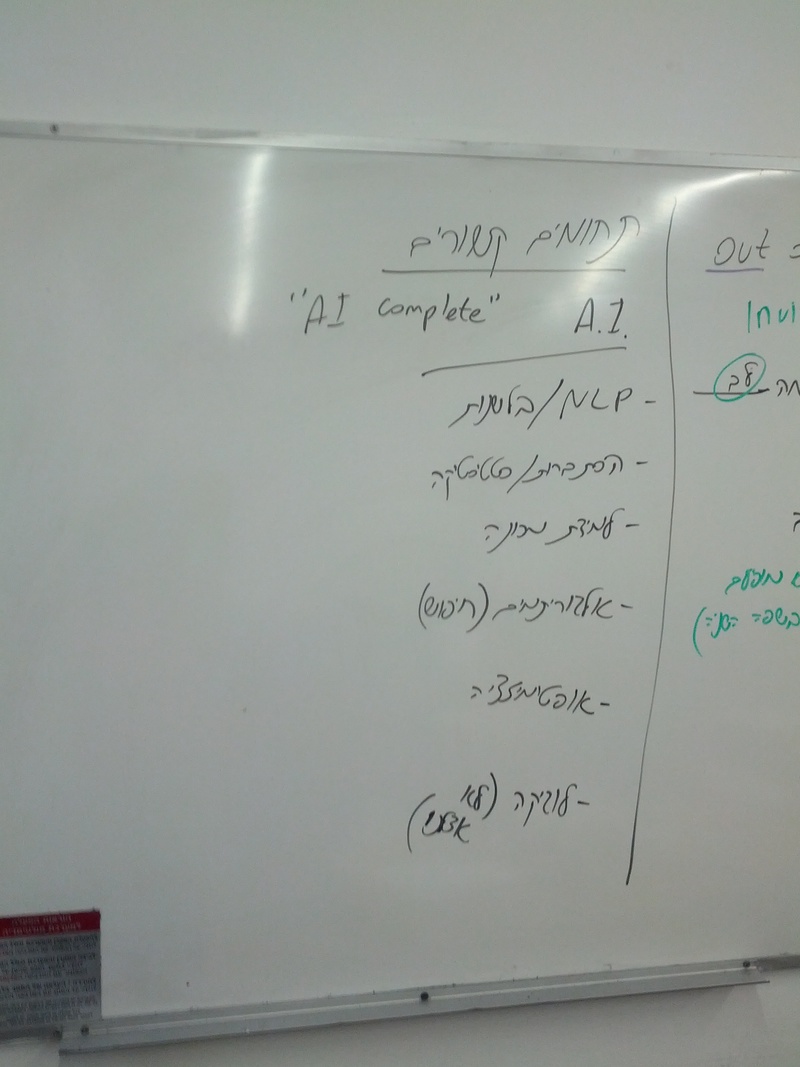 תחומים קשורים
A.I. "AI complete"
- NLP/בלשנות
- הסתברות/סטטיסטיקה
- למידת מכונה
- אלגוריתמים (חיפוש)
- אופטימיזציה
- לוגיקה (לא
אצלנו)
out
לב